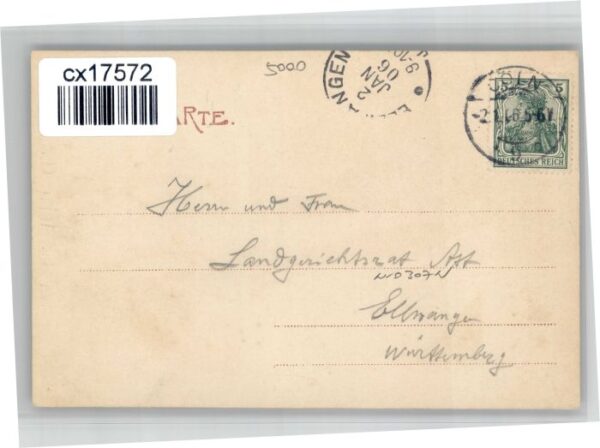 cx17572
5000
ANGEN
2
JAN
06
CÖLN
5
-2.1.06.5-6V
DEUTSCHES REICH
KARTE.
Herrn und Frau
Landgerichtsrat Ast
ND307N
Ellwangen
Württemberg